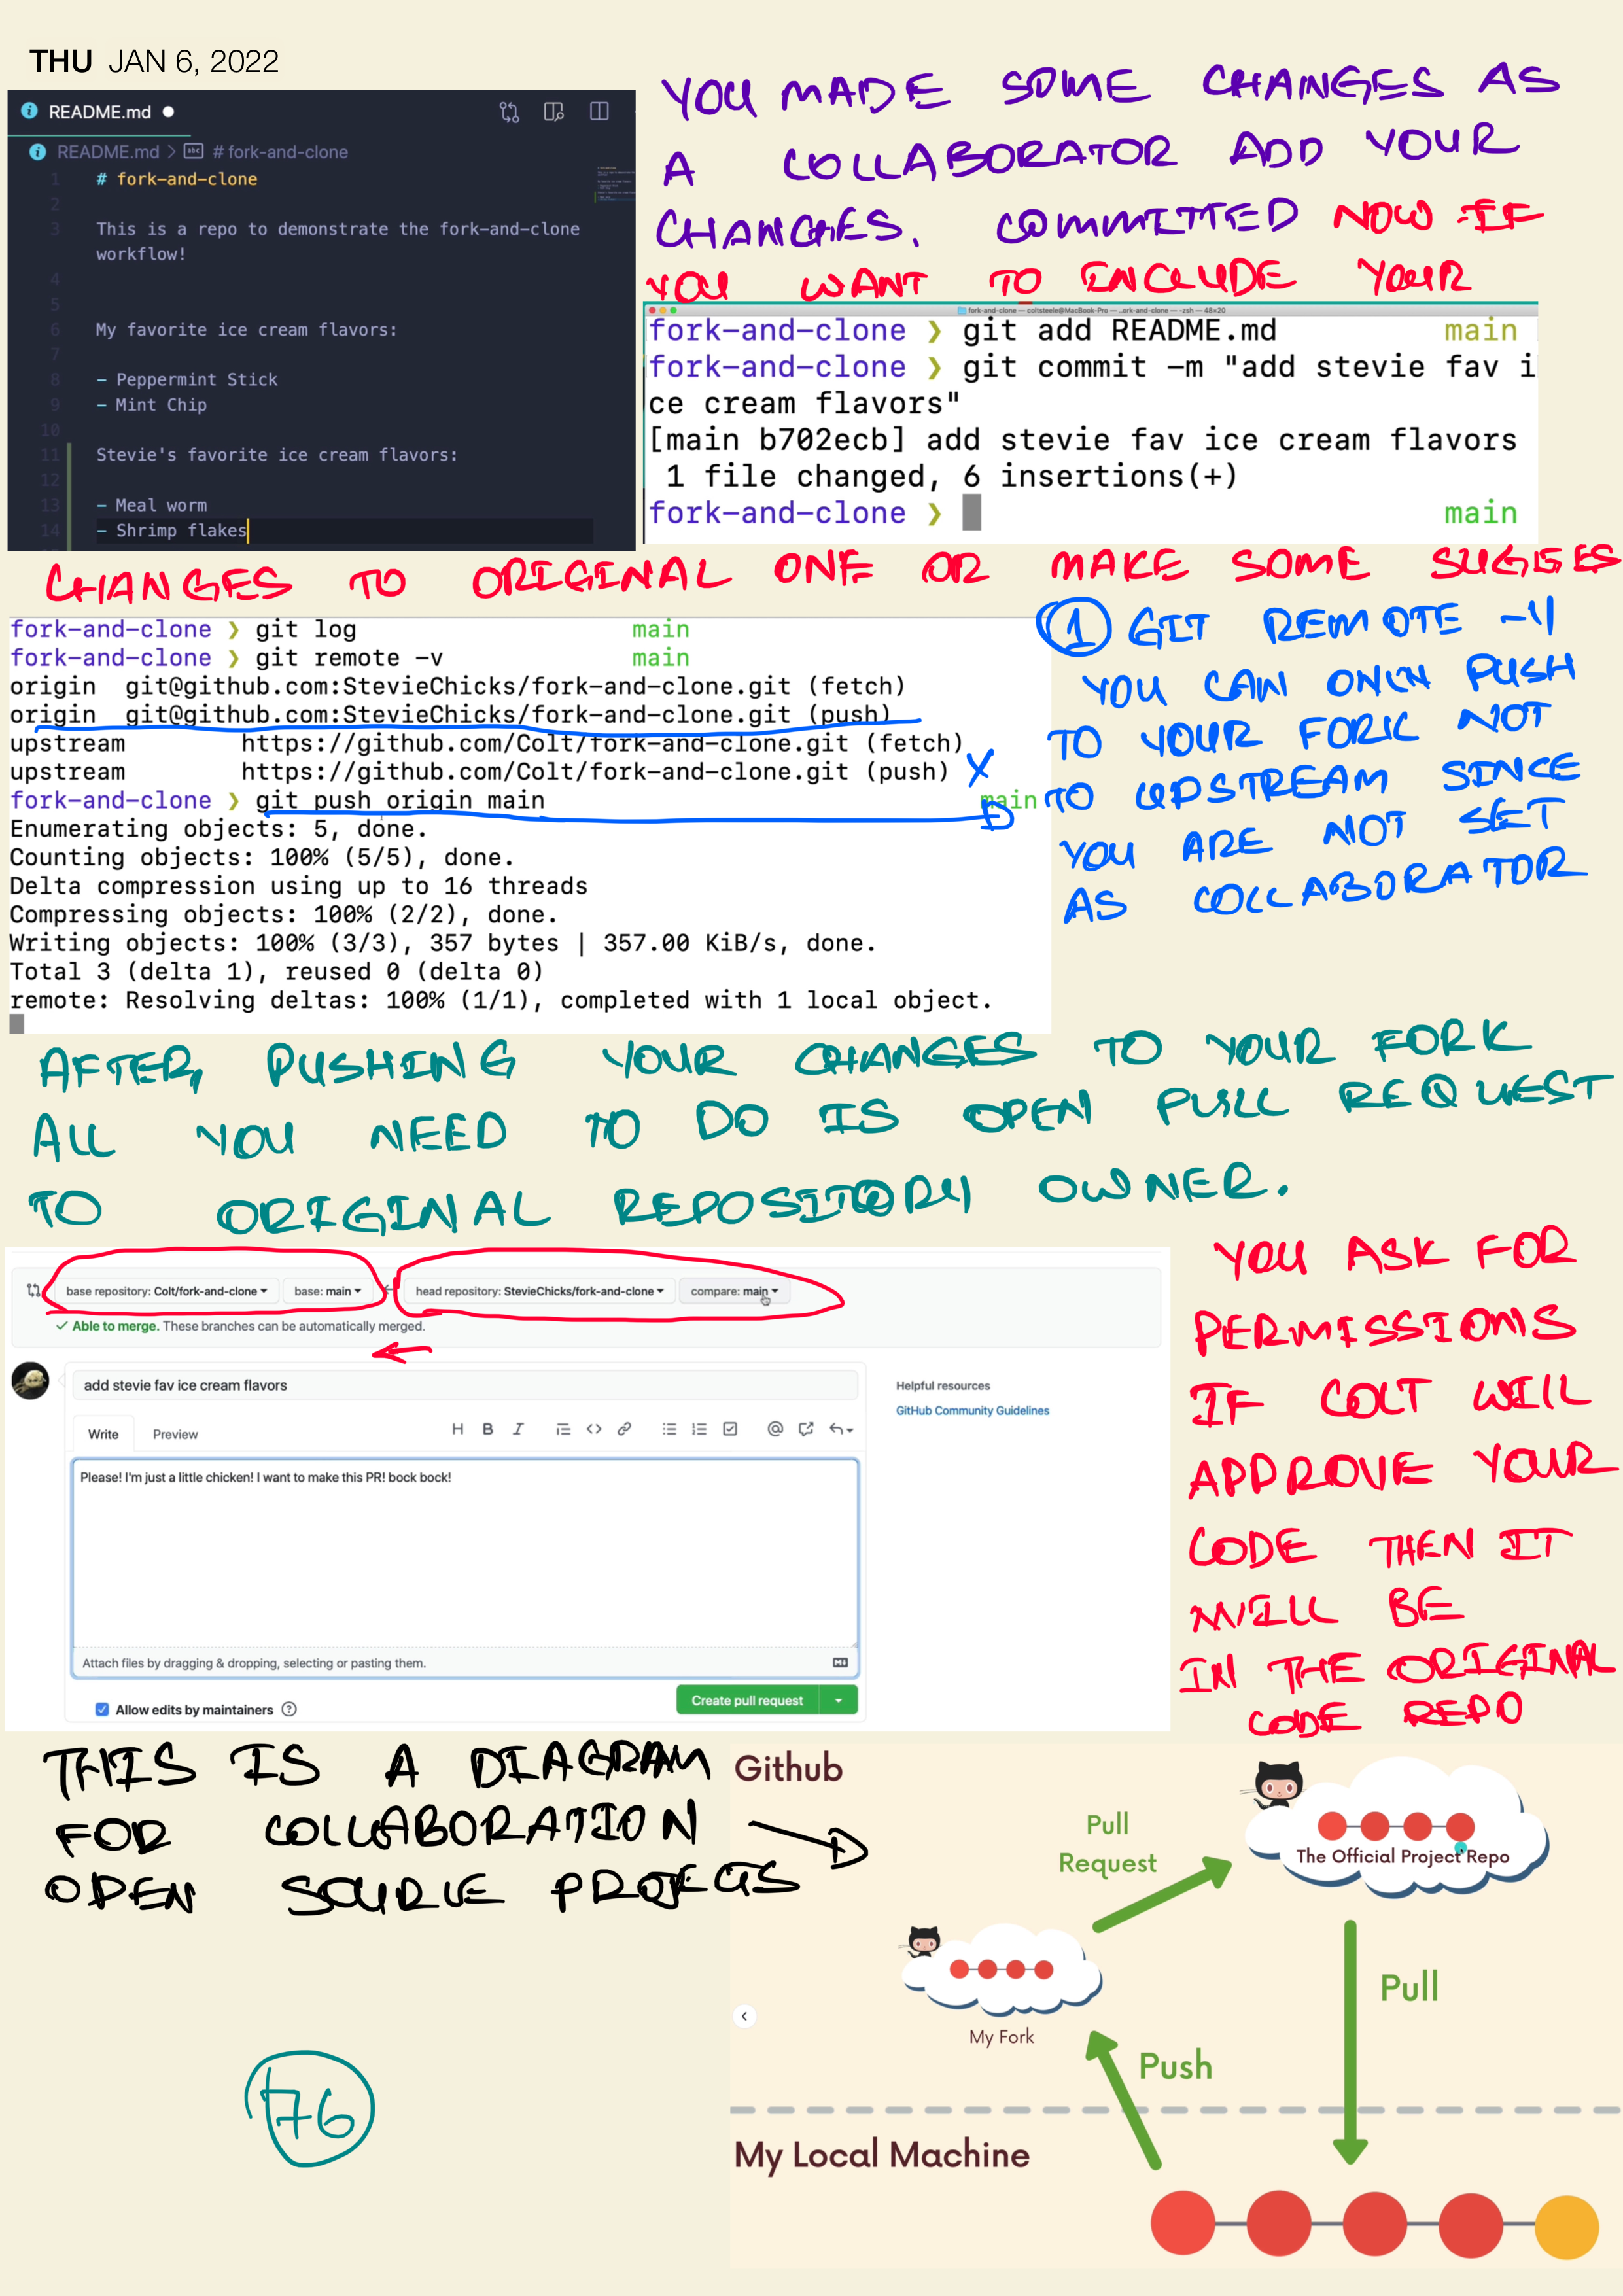 THU JAN 6, 2022
YOU MADE SOME CHANGES AS
A COLLABORATOR ADD YOUR
CHANGES. COMMITTED NOW IF
YOU WANT TO INCLUDE YOUR
README.md
README.md > # fork-and-clone
1 # fork-and-clone
2
3 This is a repo to demonstrate the fork-and-clone
workflow!
4
5
6 My favorite ice cream flavors:
7
8 - Peppermint Stick
9 - Mint Chip
10
11 Stevie's favorite ice cream flavors:
12
13 - Meal worm
14 - Shrimp flakes
fork-and-clone — coltsteele@MacBook-Pro — ..ork-and-clone — -zsh — 48×20
fork-and-clone ❯ git add README.md main
fork-and-clone ❯ git commit -m "add stevie fav i
ce cream flavors"
[main b702ecb] add stevie fav ice cream flavors
1 file changed, 6 insertions(+)
fork-and-clone ❯ main
CHANGES TO ORIGINAL ONE OR MAKE SOME SUGGES
fork-and-clone ❯ git log main
fork-and-clone ❯ git remote -v main
origin git@github.com:StevieChicks/fork-and-clone.git (fetch)
origin git@github.com:StevieChicks/fork-and-clone.git (push)
upstream https://github.com/Colt/fork-and-clone.git (fetch)
upstream https://github.com/Colt/fork-and-clone.git (push) X
fork-and-clone ❯ git push origin main main
Enumerating objects: 5, done.
Counting objects: 100% (5/5), done.
Delta compression using up to 16 threads
Compressing objects: 100% (2/2), done.
Writing objects: 100% (3/3), 357 bytes | 357.00 KiB/s, done.
Total 3 (delta 1), reused 0 (delta 0)
remote: Resolving deltas: 100% (1/1), completed with 1 local object.
1 GIT REMOTE -V
YOU CAN ONLY PUSH
TO YOUR FORK NOT
TO UPSTREAM SINCE
YOU ARE NOT SET
AS COLLABORATOR
AFTER, PUSHING YOUR CHANGES TO YOUR FORK
ALL YOU NEED TO DO IS OPEN PULL REQUEST
TO ORIGINAL REPOSITORY OWNER.
base repository: Colt/fork-and-clone base: main head repository: StevieChicks/fork-and-clone compare: main
✓ Able to merge. These branches can be automatically merged.
add stevie fav ice cream flavors
Write Preview
Please! I'm just a little chicken! I want to make this PR! bock bock!
Attach files by dragging & dropping, selecting or pasting them.
Allow edits by maintainers
Create pull request
Helpful resources
GitHub Community Guidelines
YOU ASK FOR
PERMISSIONS
IF COLT WILL
APPROVE YOUR
CODE THEN IT
WILL BE
IN THE ORIGINAL
CODE REPO
THIS IS A DIAGRAM
FOR COLLABORATION
OPEN SOURCE PROJECTS
Github
Pull
Request
The Official Project Repo
My Fork
Pull
Push
My Local Machine
76